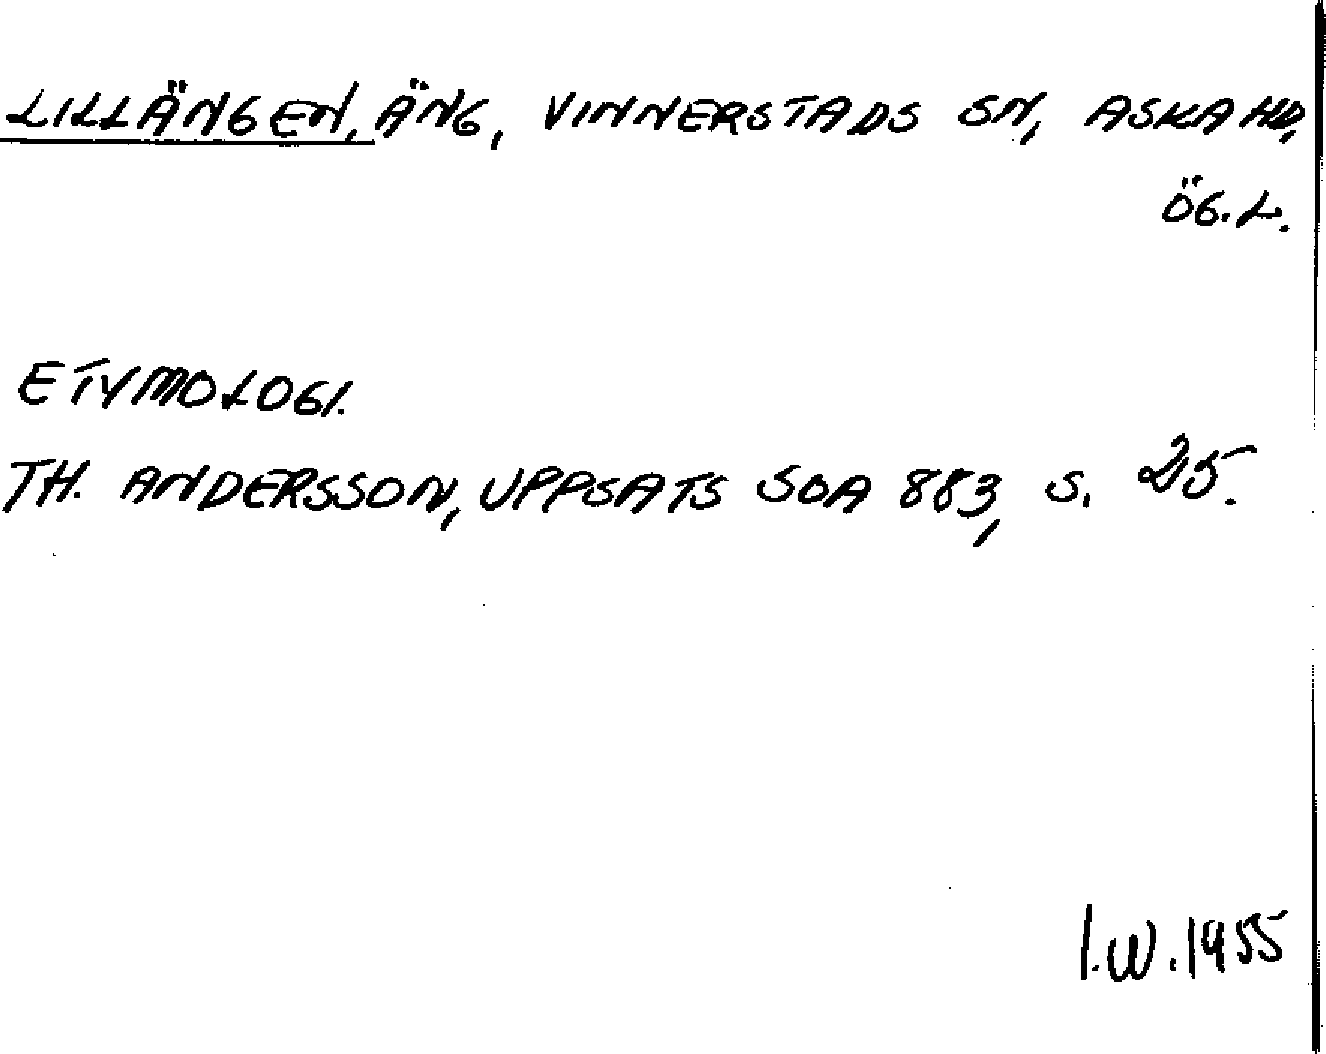 LILLÄNGEN, ÄNG, VINNERSTADS SN, ASKA HD,
ÖG.L.
ETYMOLOGI.
TH. ANDERSSON, UPPSATS SOA 883, S. 25.
I.W. 1955